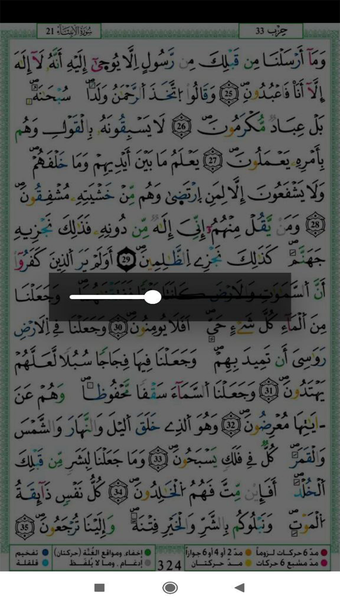 سُورَةُ الأَنبِيَاء 21
حِزْب 33
وَمَآ أَرْسَلْنَا مِن قَبْلِكَ مِن رَّسُولٍ اِلَّا يُوحَىٰٓ إِلَيْهِ أَنَّهُۥ لَآ إِلَٰهَ
إِلَّآ أَنَا فَاعْبُدُونِ 25 وَقَالُوا اُ۪تَّخَذَ اَ۬لرَّحْمَٰنُ وَلَداٗ سُبْحَٰنَهُۥ
بَلْ عِبَادٞ مُّكْرَمُونَ 26 لَا يَسْبِقُونَهُۥ بِالْقَوْلِ وَهُم
بِأَمْرِهِۦ يَعْمَلُونَ 27 يَعْلَمُ مَا بَيْنَ أَيْدِيهِمْ وَمَا خَلْفَهُمْ
وَلَا يَشْفَعُونَ إِلَّا لِمَنِ اِ۪رْتَضَىٰ وَهُم مِّنْ خَشْيَتِهِۦ مُشْفِقُونَ
28 وَمَنْ يَّقُلْ مِنْهُمُۥٓ إِنِّيَ إِلَٰهٞ مِّن دُونِهِۦ فَذَٰلِكَ نَجْزِيهِ
جَهَنَّمَ كَذَٰلِكَ نَجْزِے اِ۬لظَّٰلِمِينَ 29 أَوَلَمْ يَرَ اَ۬لذِينَ كَفَرُوٓاْ
أَنَّ اَ۬لسَّمَٰوَٰتِ وَالَارْضَ كَانَتَا وَجَعَلْنَا
مِنَ اَ۬لْمَآءِ كُلَّ شَےْءٍ حَيٍّ اَفَلَا يُومِنُونَ 30 وَجَعَلْنَا فِے اِ۬لَارْضِ
رَوَٰسِيَ أَن تَمِيدَ بِهِمْ وَجَعَلْنَا فِيهَا فِجَاجاٗ سُبُلاٗ لَّعَلَّهُمْ
يَهْتَدُونَ 31 وَجَعَلْنَا اَ۬لسَّمَآءَ سَقْفاٗ مَّحْفُوظاٗ وَهُمْ عَنَ
اٰيَٰتِهَا مُعْرِضُونَ 32 وَهُوَ اَ۬لذِے خَلَقَ اَ۬ليْلَ وَالنَّهَارَ وَالشَّمْسَ
وَالْقَمَرَ كُلّٞ فِے فَلَكٖ يَسْبَحُونَ 33 وَمَا جَعَلْنَا لِبَشَرٖ مِّن قَبْلِكَ
اَ۬لْخُلْدَ أَفَإِيْن مِّتَّ فَهُمُ اُ۬لْخَٰلِدُونَ 34 كُلُّ نَفْسٖ ذَآئِقَةُ
اُ۬لْمَوْتِ وَنَبْلُوكُم بِالشَّرِّ وَالْخَيْرِ فِتْنَةٗ وَإِلَيْنَا تُرْجَعُونَ 35
مدّ 6 حركات لزوماً مدّ 2 أو 4 أو 6 جوازاً إخفاء، ومواقع الغُنَّة (حركتان) تفخيم
مدّ مشبع 6 حركات مدّ حركتان 324 إدغام، وما لا يُلفَظ قلقلة